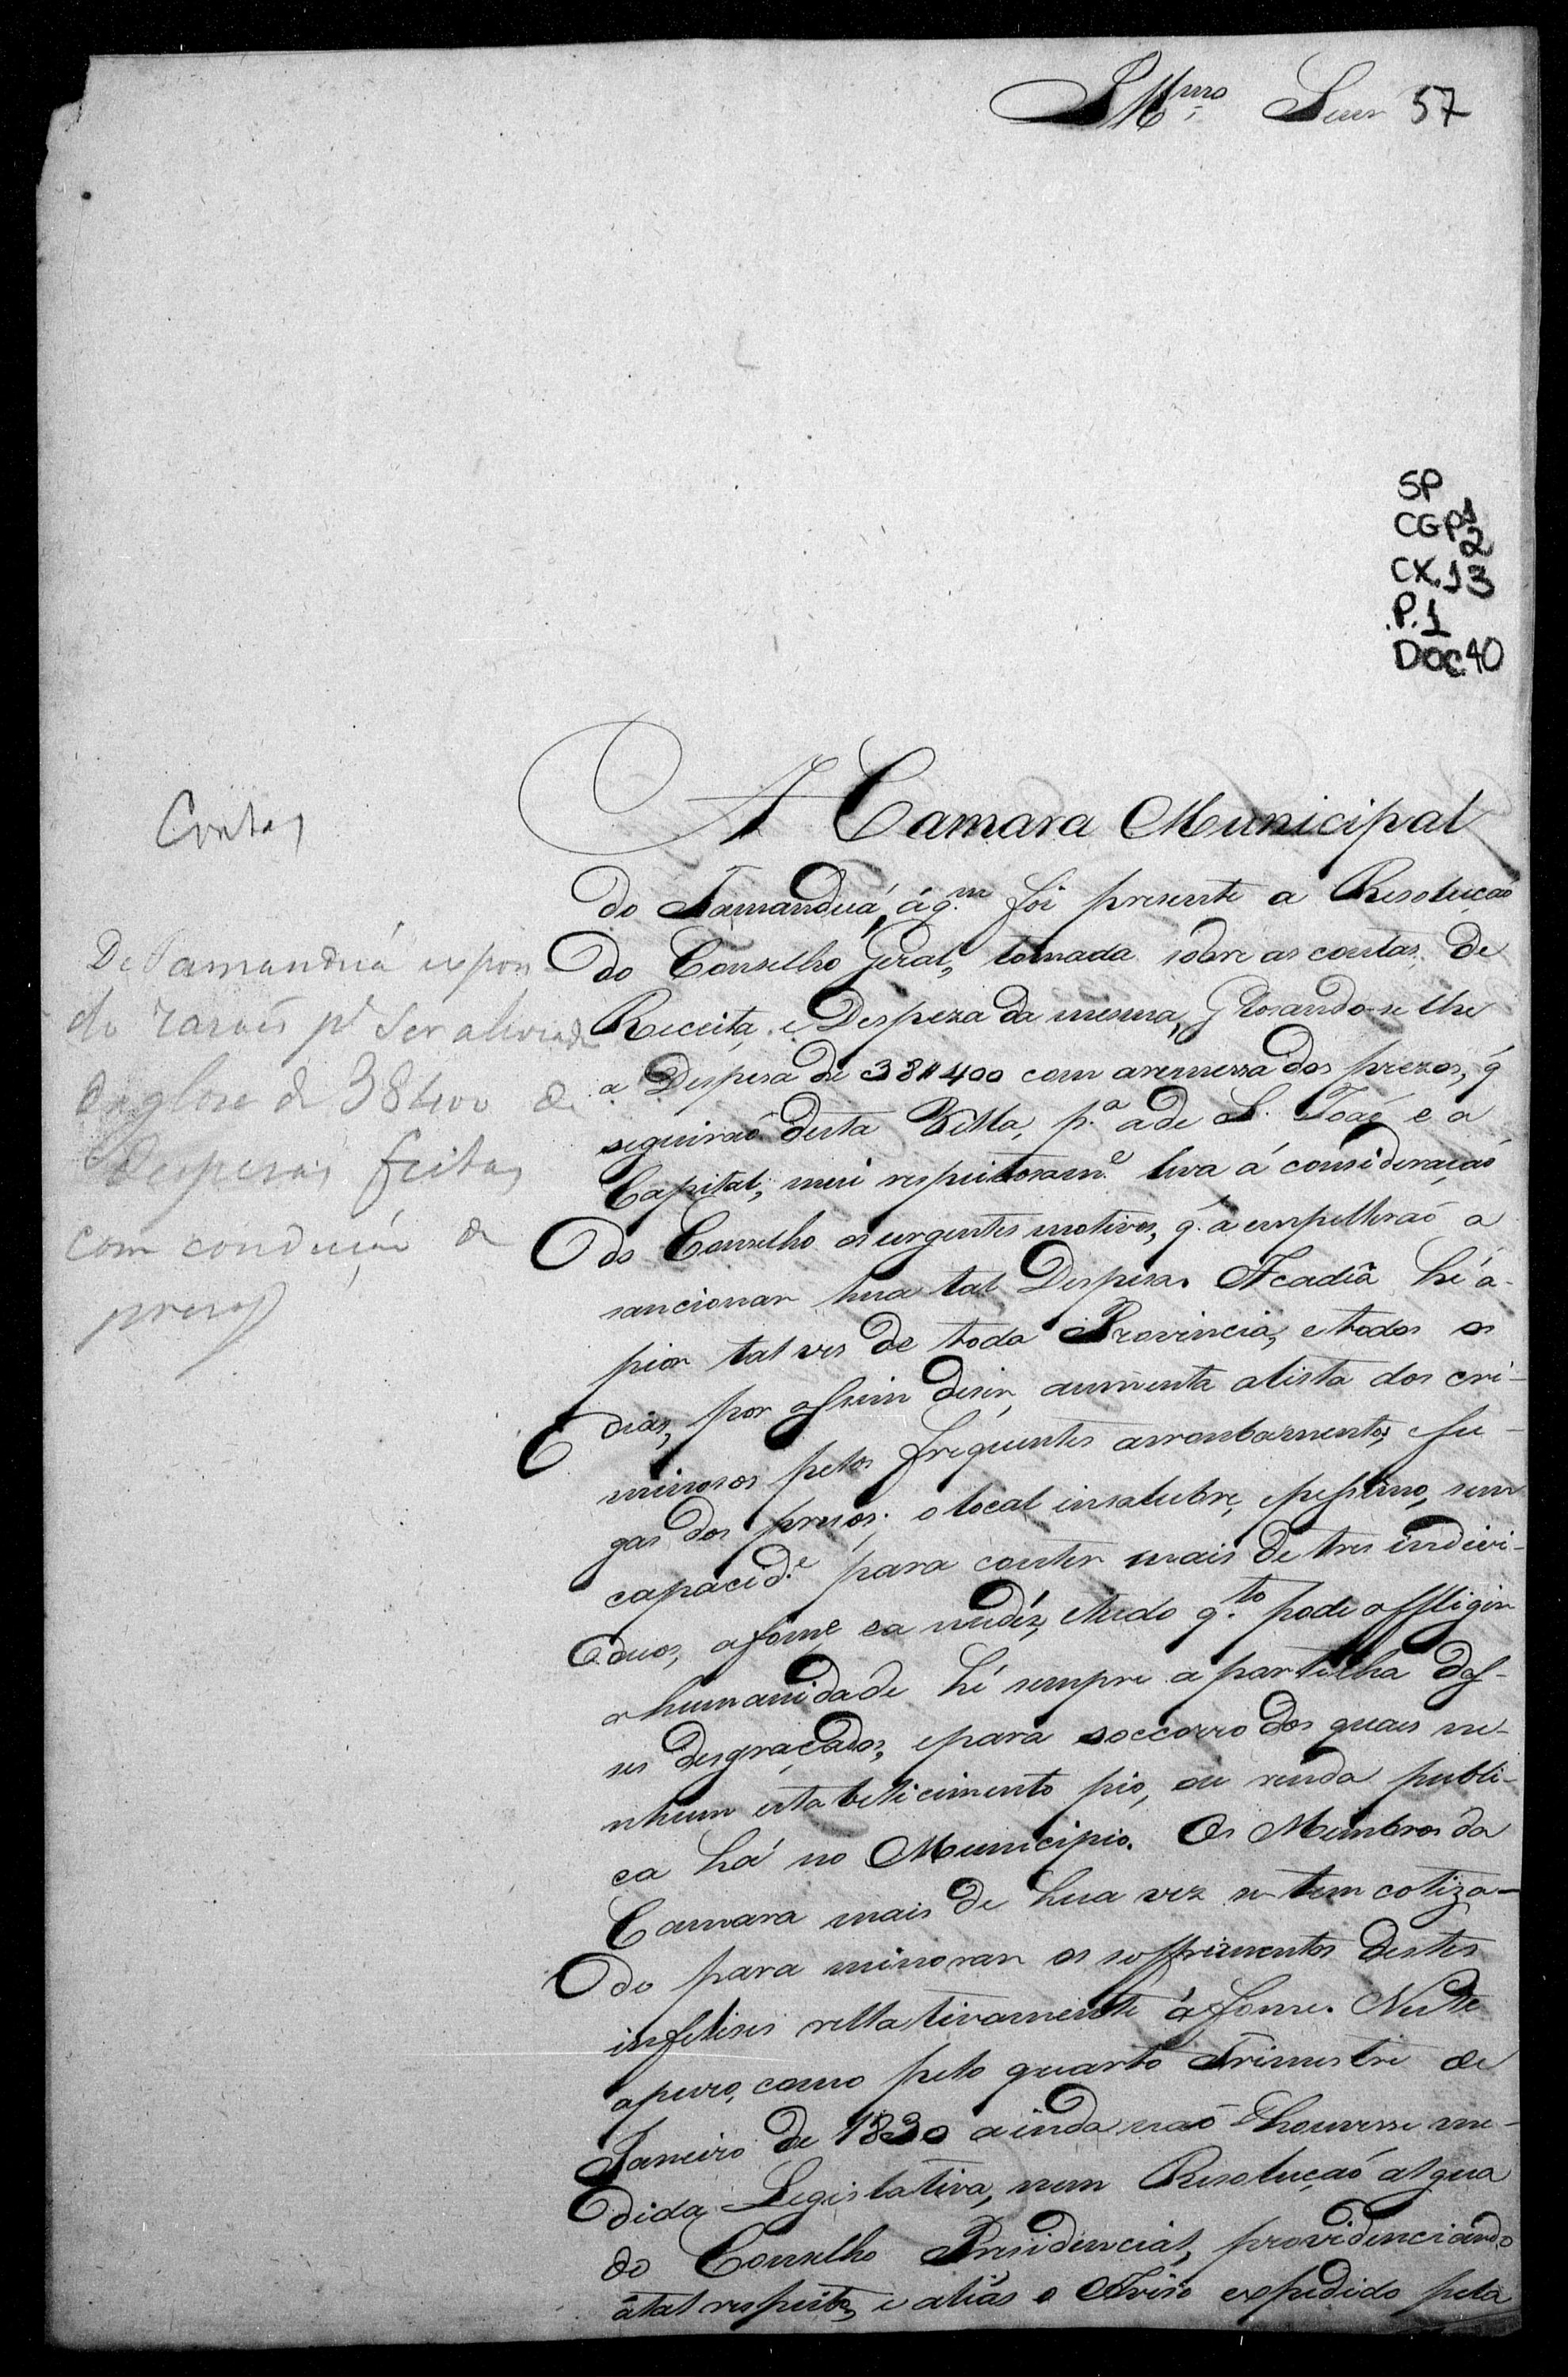 Illmo Senr 57
SP
CGP1
2
CX.13
P.1
DOC 40
Contas
De Tamanduá expon
do razoẽs pa ser aliviada
da glosa de 38400 de
despesas feitas
com conducçaõ de
presos
A Camara Municipal
do Tamanduá, á q.m foi presente a Resoluçaõ
do Conselho Geral, tomada sobre as contas de
Receita, e Despeza da mesma, Glosando-se lhe
a Despesa de 38#400 com aremessa dos prezos, q̃
seguiraõ desta Villa, p.a ade S. Joaõ e a
Capital; mui respeitosam.e leva á consideraçaõ
do Conselho os urgentes motivos, q̃ a empelleraõ a
sancionar hua tal Despesa. Acadêa hé a
pior tal ves de toda Provincia, etodos os
dias, por assim diser, aumenta alista dos cri-
minosos pelos frequentes arrombamentos, efu-
gas dos presos; olocal insalubre, epessimo, sem
capacid.e para conter mais de tres indivi-
duos, afome, ea nudéz, etudo q.to pode affligir
ahumanidade hé sempre apartilha des-
ses desgraçados, epara soccorro dos quais ne-
nhum estabelicimento pio, ou renda publi-
ca há no Municipio. Os Membros da
Camara mais de hua vez se tem cotiza-
do para minorar os soffrimentos destes
infelises rellativamente áfome. Neste
apuro, como pelo quarto Trimestre de
Janeiro de 1830 ainda naõ houvesse me-
dida Legislativa, nem Resoluçaõ algua
do Conselho Presidencial, providenciando
átal respeito, e aliás o Aviso expedido pela